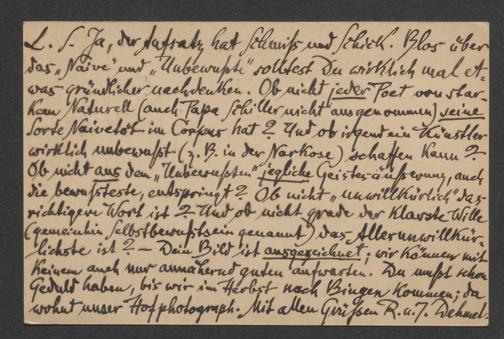 L. S. Ja, der Aufsatz hat Schmiß und Schick. Blos über
das „Naive" und „Unbewußte" solltest Du wirklich mal et-
was gründlicher nachdenken. Ob nicht jeder Poet von star-
kem Naturell (auch Papa Schiller nicht ausgenommen) seine
Sorte Naivetät im Corpus hat? Und ob irgendein Künstler
wirklich unbewußt (z. B. in der Narkose) schaffen kann?
Ob nicht aus dem „Unbewußten" jegliche Geistesäußerung, auch
die bewußteste, entspringt? Ob nicht „unwillkürlich" das
richtigere Wort ist? Und ob nicht grade der klarste Wille
(gemeinhin Selbstbewußtsein genannt) das Allerunwillkür-
lichste ist? – Dein Bild ist ausgezeichnet; wir können mit
keinem auch nur annähernd guten aufwarten. Du mußt schon
Geduld haben, bis wir im Herbst nach Bingen kommen; da
wohnt unser Hofphotograph. Mit allen Grüßen R. u. I. Dehmel.